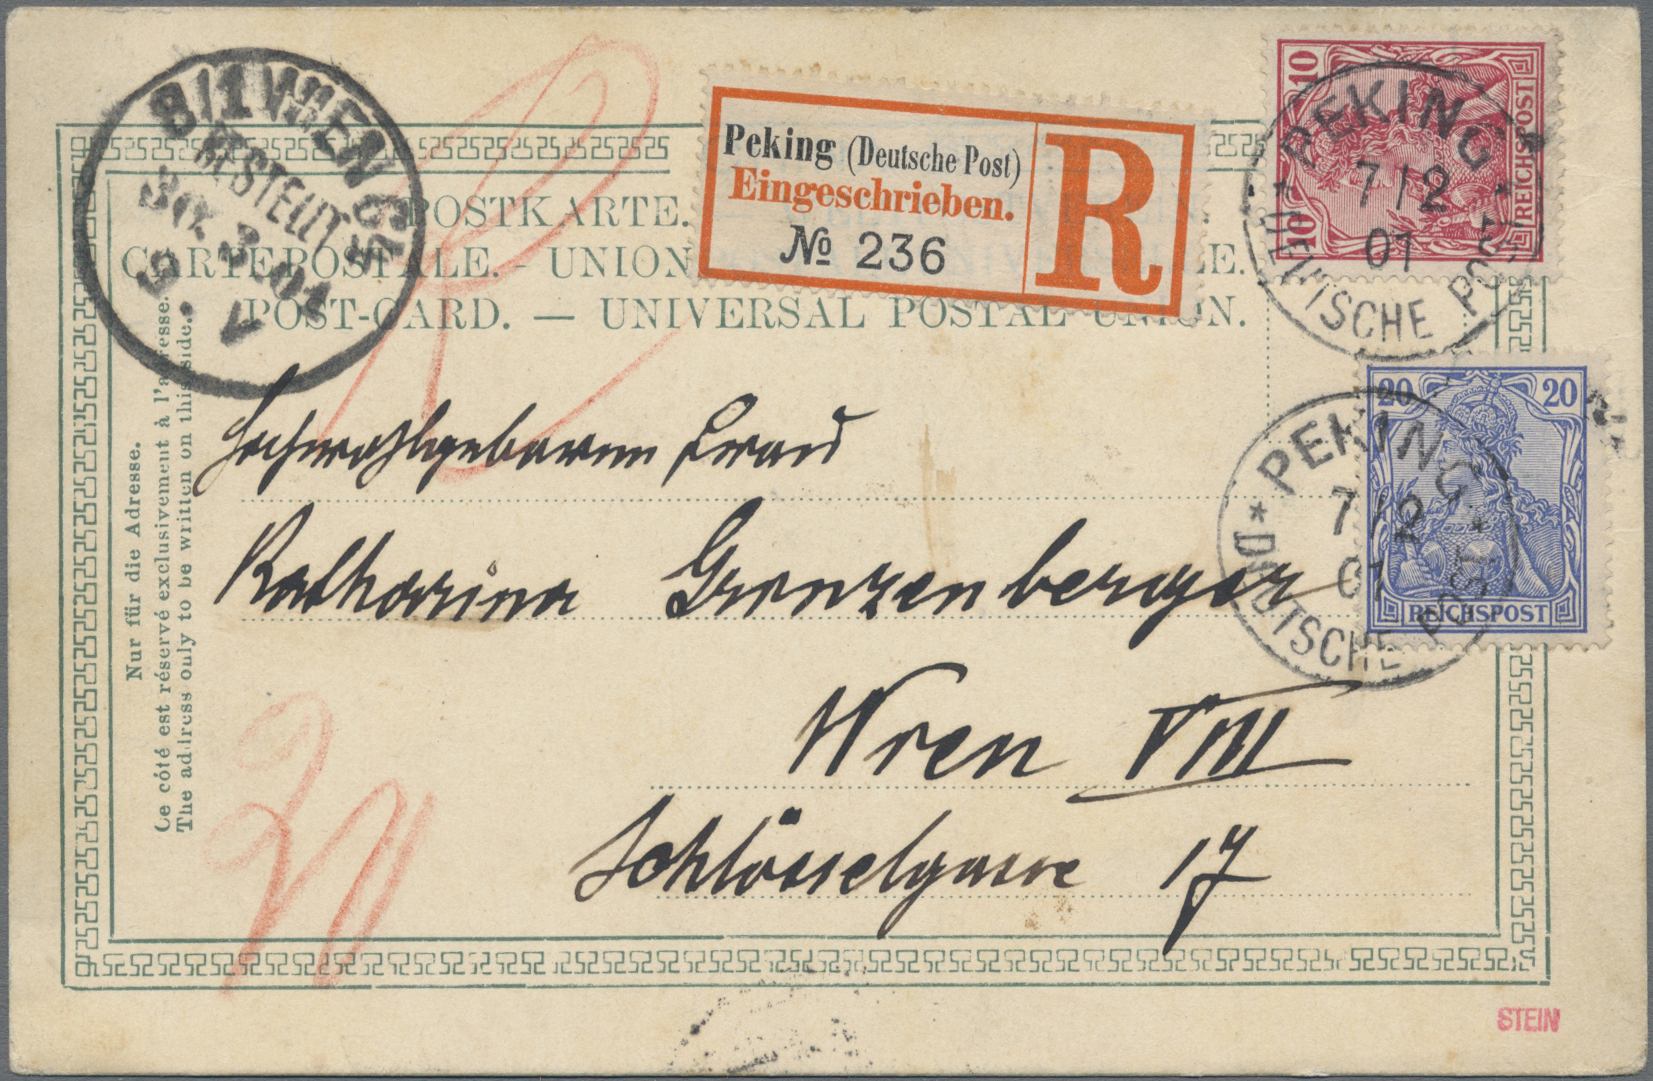 8/1 WIEN
BESTELLT
30. 3. 01
9. V
POSTKARTE.
CARTE POSTALE. - UNION LE.
POST-CARD. — UNIVERSAL POSTAL UNION.
Peking (Deutsche Post)
Eingeschrieben.
No 236
R
10
10
REICHSPOST
PEKING
7/2
01
DEUTSCHE POST
20 20
REICHSPOST
PEKING
7/2
01
DEUTSCHE POST
Nur für die Adresse.
Ce côté est réservé exclusivement à l'adresse.
The address only to be written on this side.
Hochwohlgeboren Frau
Katharina Granzenberger
Wien VIII
Schlösselgasse 17
STEIN